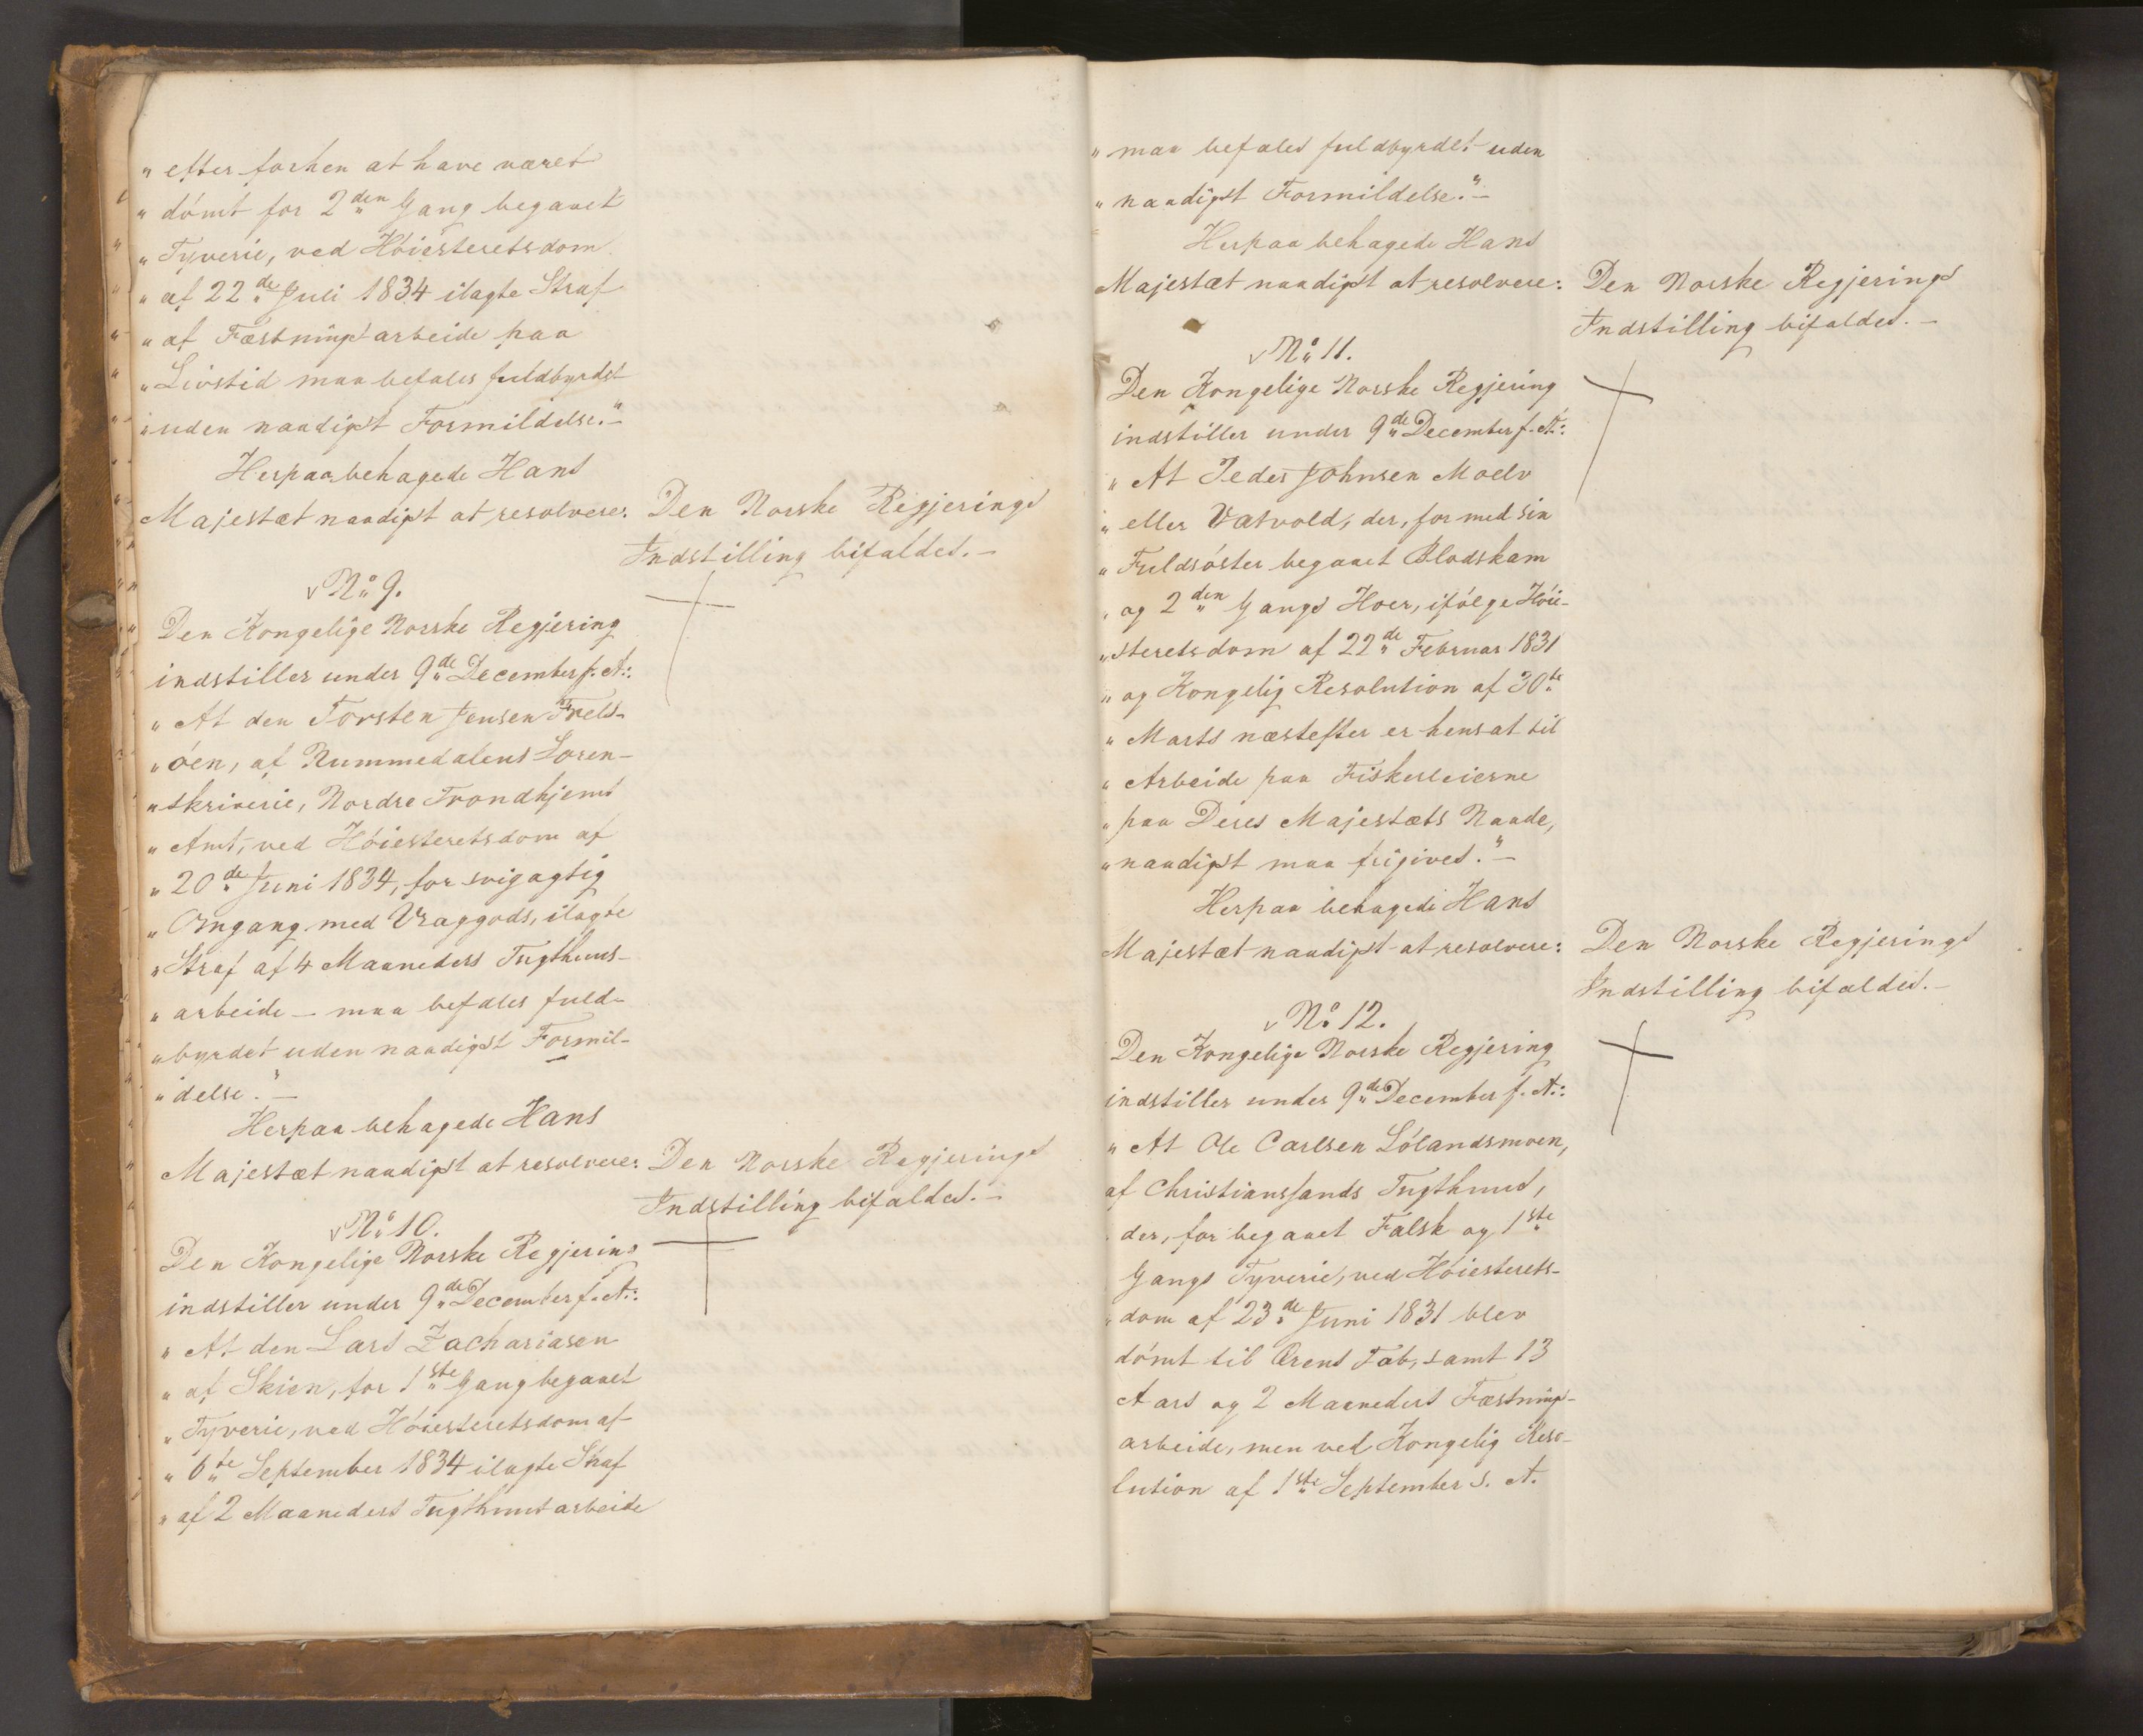 „ efter forhen at have været
„ dömt for 2den Gang begaaet
„ Tyverie, ved Höiesteretsdom
„ af 22de Juli 1834 ilagte Straf
„ af Fæstningsarbeide paa
„ Livstid maa befales fuldbyrdet
„ uden naadigst Formildelse." –
Herpaa behagede Hans
Majestæt naadigst at resolvere:
Den Norske Regjerings
Indstilling bifaldes. –
No 9.
Den Kongelige Norske Regjering
indstiller under 9de December f. A.:
„ At den Torsten Jensen
„ öen, af Nummedalens Soren-
„ skriverie, Nordre Trondhjems
„ Amt, ved Höiesteretsdom af
„ 20de Juni 1834, for svigagtig
„ Omgang med Vraggods, ilagte
„ Straf af 4 Maaneders Tugthuus-
„ arbeide – maa befales fuld-
„ byrdet uden naadigst Formil-
„ delse." –
Herpaa behagede Hans
Majestæt naadigst at resolvere:
Den Norske Regjerings
Indstilling bifaldes. –
No 10.
Den Kongelige Norske Regjering
indstiller under 9de December f. A.:
„ At den Lars Zachariasen
„ af Skien, for 1ste Gang begaaet
„ Tyverie, ved Höiesteretsdom af
„ 6te September 1834 ilagte Straf
„ af 2 Maaneders Tugthuusarbeide
„ maa befales fuldbyrdet uden
„ naadigst Formildelse." –
Herpaa behagede Hans
Majestæt naadigst at resolvere:
Den Norske Regjerings
Indstilling bifaldes. –
No 11.
Den Kongelige Norske Regjering
indstiller under 9de December f. A.:
„ At Peder Johnsen Moelv
„ eller Vatvold, der, for med sin
„ Fuldsöster begaaet Blodskam
„ og 2den Gangs Hoer, ifölge Höie-
„ steretsdom af 22de Februar 1831
„ og Kongelig Resolution af 30te
„ Marts næstefter er hensat til
„ Arbeide paa Fiskerleierne
„ paa Deres Majestæts Naade,
„ naadigst maa frigives." –
Herpaa behagede Hans
Majestæt naadigst at resolvere:
Den Norske Regjerings
Indstilling bifaldes. –
No 12.
Den Kongelige Norske Regjering
indstiller under 9de December f. A.:
„ At Ole Carlsen Lölandsmoen,
af Christianssands Tugthuus,
der, for begaaet Falsk og 1ste
Gangs Tyverie, ved Höiesterets-
„ dom af 23de Juni 1831 blev
dömt til Ærens Tab, samt 13
Aars og 2 Maaneders Fæstnings-
arbeide, men ved Kongelig Reso-
lution af 1ste September s. A.